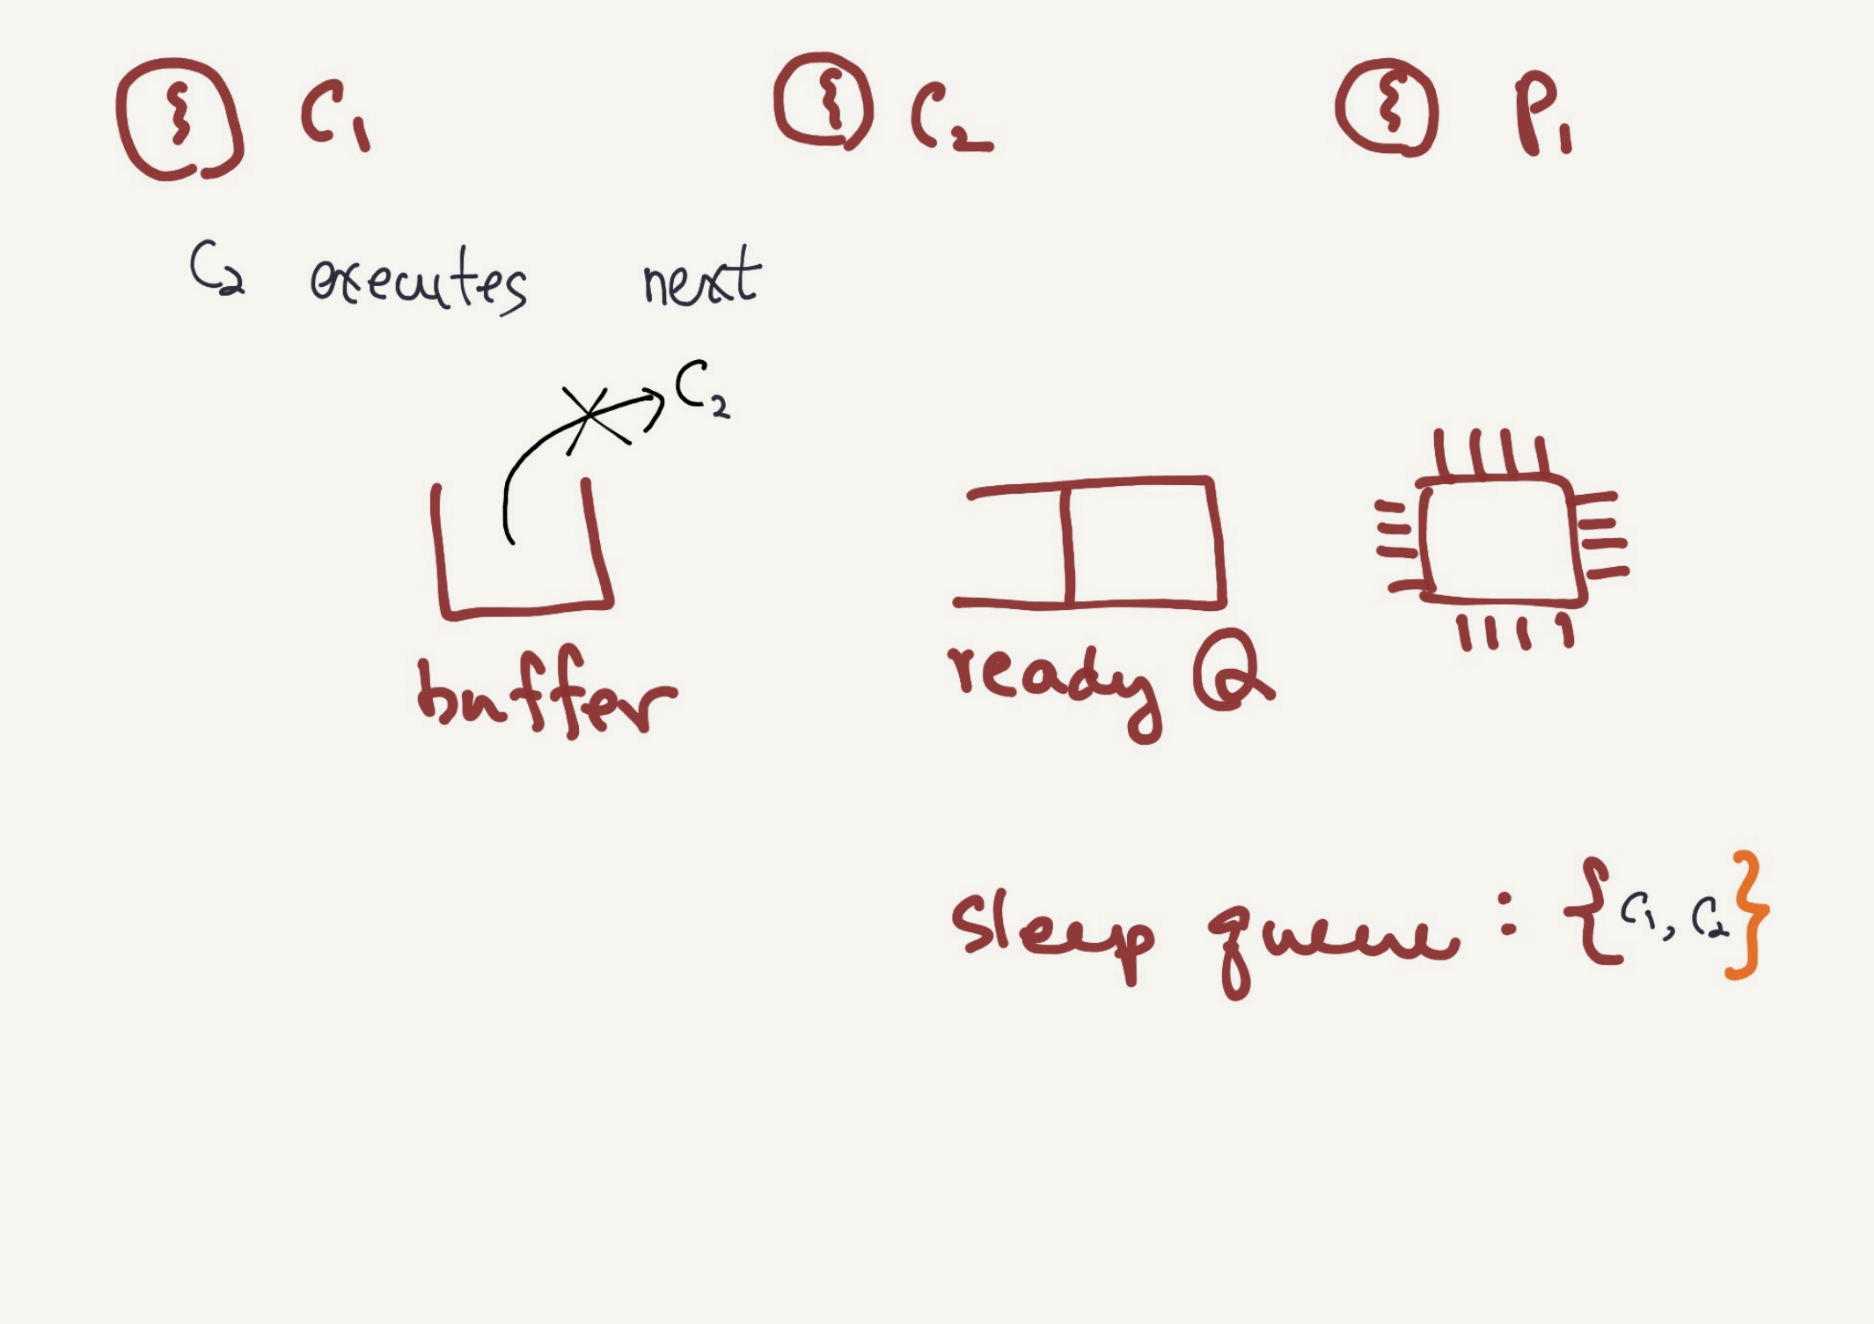 C1
C2
P1
C2 executes next
C2
buffer
ready Q
sleep queue : {C1, C2}